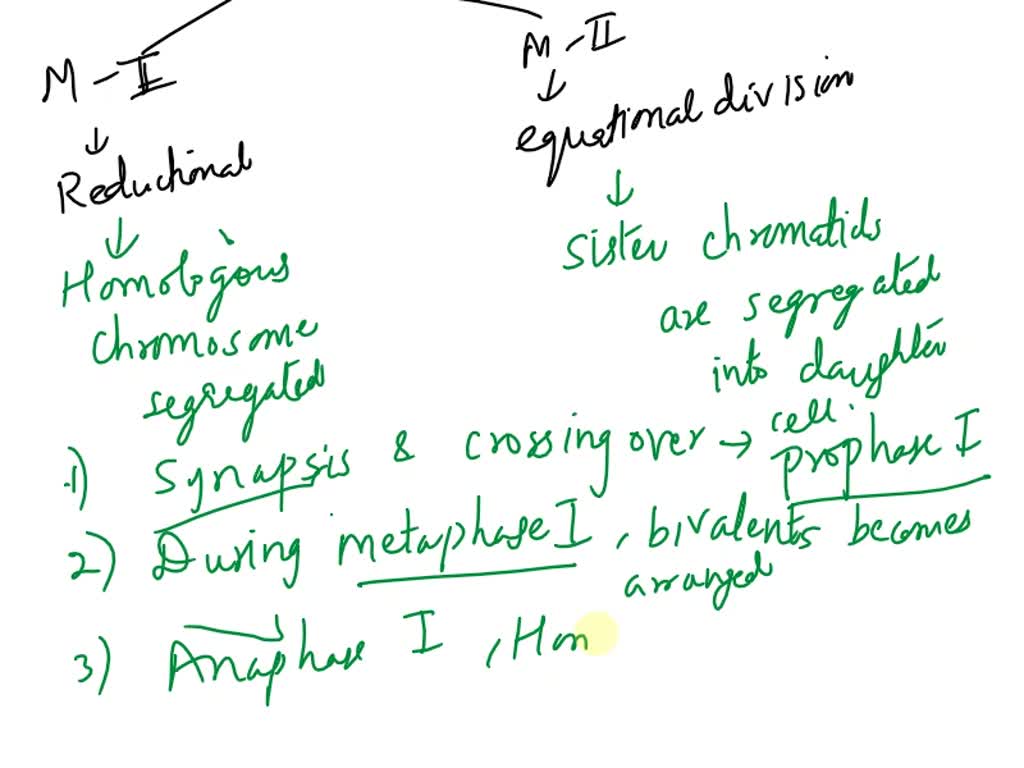 M-I
M-II
Reductional
equational division
Homologous
chromosome
segregated
Sister chromatids
are segregated
into daughter
cell.
1) Synapsis & crossing over → prophase I
2) During metaphase I, bivalents becomes
arranged
3) Anaphase I, Hom